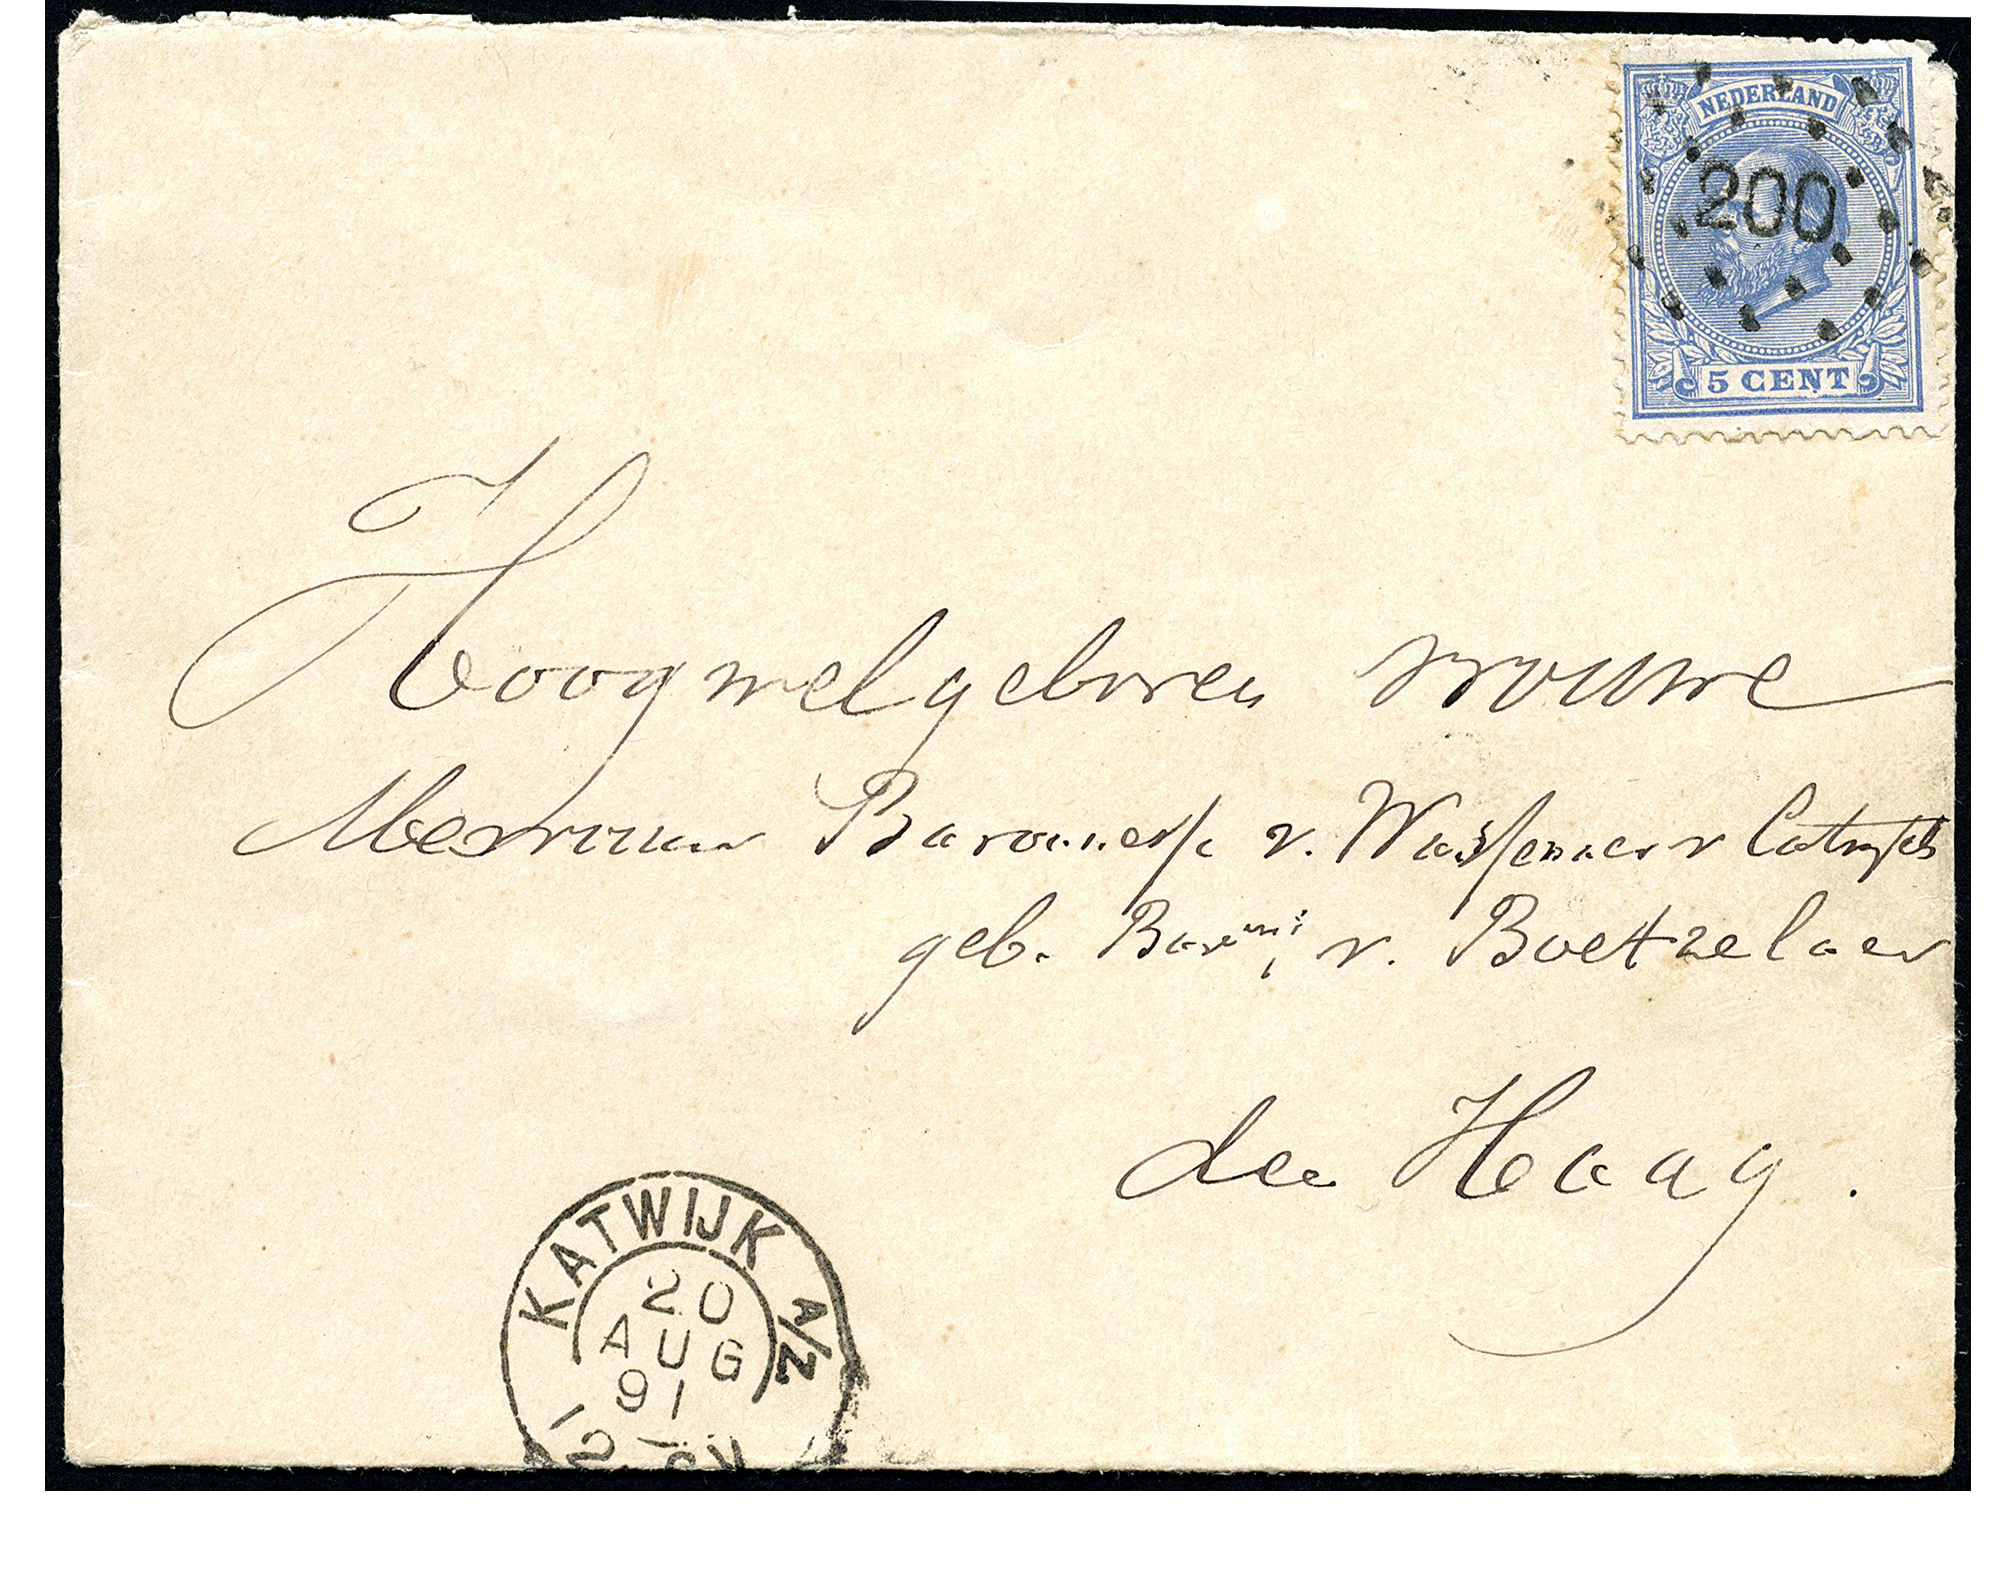 NEDERLAND
200
5 CENT
Hoogwelgeboren vrouwe
Mevrouw Baronesse v. Wassenaer v Catwijck
geb. v. Boetzelaer
den Haag.
KATWIJK A/Z
20
AUG
91